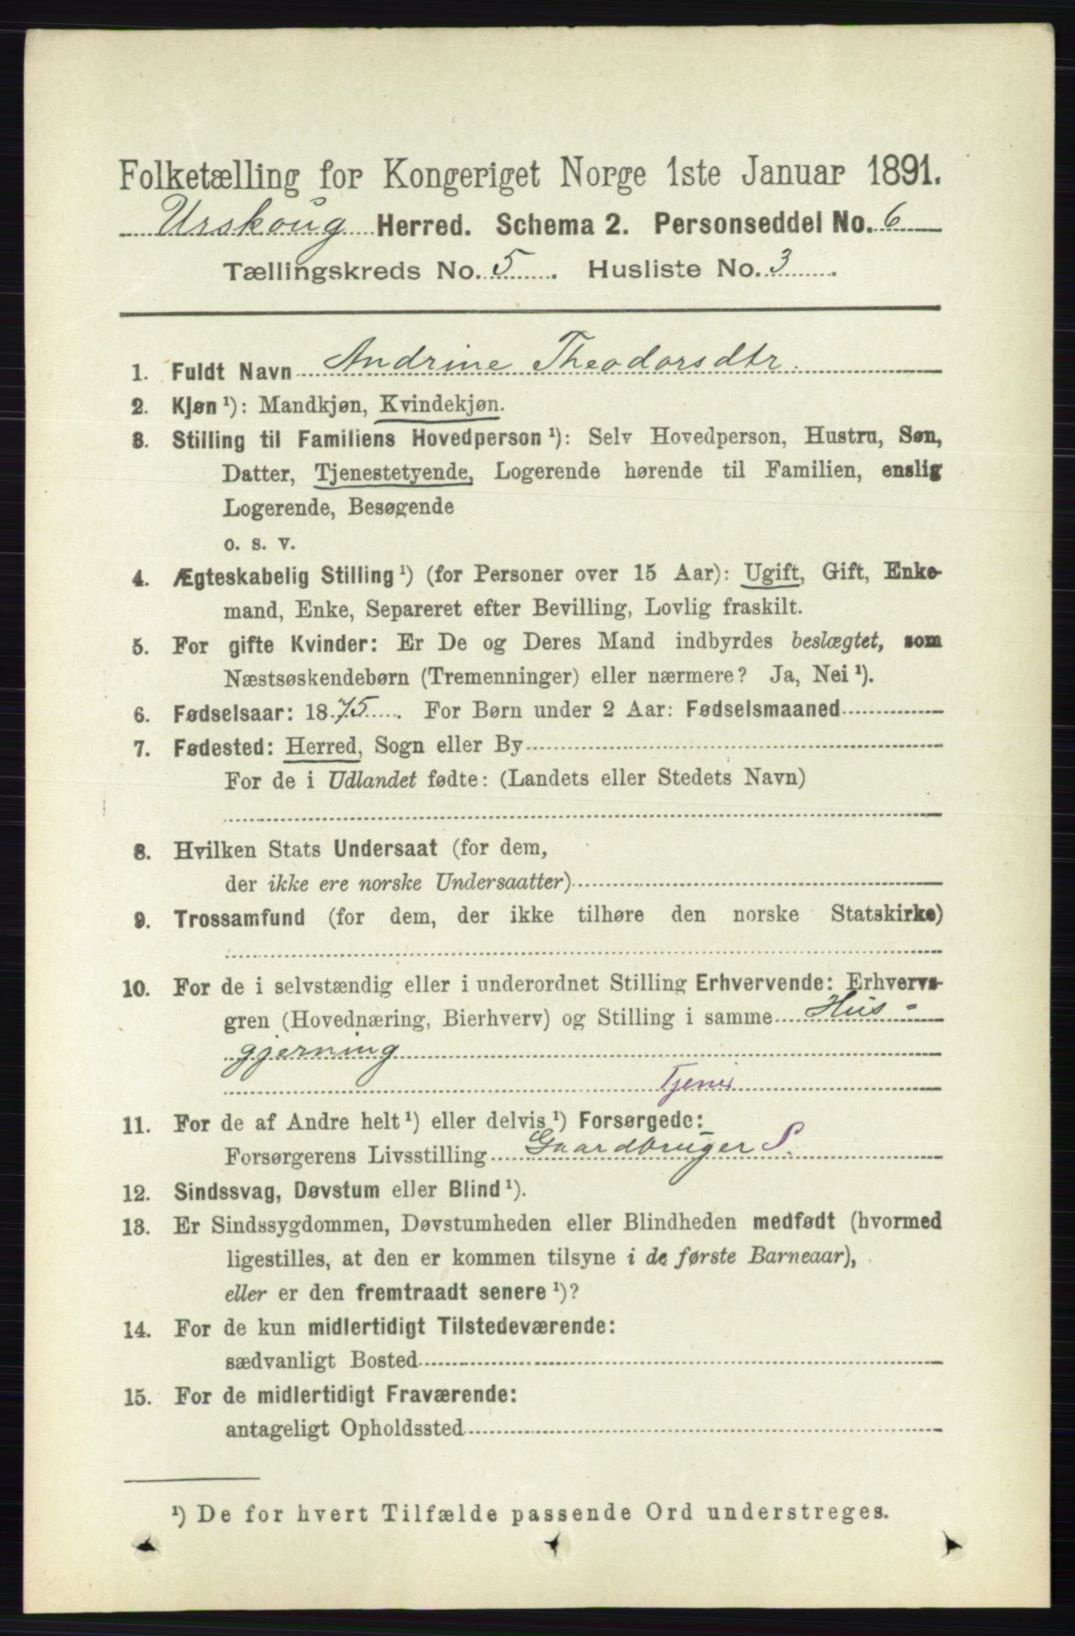 Folketælling for Kongeriget Norge 1ste Januar 1891.
Urskoug Herred. Schema 2. Personseddel No. 6
Tællingskreds No. 5. Husliste No. 3.
1. Fuldt Navn Andrine Theodorsdtr.
2. Kjøn ¹): Mandkjøn, Kvindekjøn.
3. Stilling til Familiens Hovedperson ¹): Selv Hovedperson, Hustru, Søn,
Datter, Tjenestetyende, Logerende hørende til Familien, enslig
Logerende, Besøgende
o. s. v.
4. Ægteskabelig Stilling ¹) (for Personer over 15 Aar): Ugift, Gift, Enke-
mand, Enke, Separeret efter Bevilling, Lovlig fraskilt.
5. For gifte Kvinder: Er De og Deres Mand indbyrdes beslægtet, som
Næstsøskendebørn (Tremenninger) eller nærmere? Ja, Nei ¹).
6. Fødselsaar: 1875. For Børn under 2 Aar: Fødselsmaaned
7. Fødested: Herred, Sogn eller By
For de i Udlandet fødte: (Landets eller Stedets Navn)
8. Hvilken Stats Undersaat (for dem,
der ikke ere norske Undersaatter)
9. Trossamfund (for dem, der ikke tilhøre den norske Statskirke)
10. For de i selvstændig eller i underordnet Stilling Erhvervende: Erhvervs-
gren (Hovednæring, Bierhverv) og Stilling i samme Hus-
gjerning
Tjener
11. For de af Andre helt ¹) eller delvis ¹) Forsørgede:
Forsørgerens Livsstilling Gaardbruger S.
12. Sindssvag, Døvstum eller Blind ¹).
13. Er Sindssygdommen, Døvstumheden eller Blindheden medfødt (hvormed
ligestilles, at den er kommen tilsyne i de første Barneaar),
eller er den fremtraadt senere ¹)?
14. For de kun midlertidigt Tilstedeværende:
sædvanligt Bosted
15. For de midlertidigt Fraværende:
antageligt Opholdssted
¹) De for hvert Tilfælde passende Ord understreges.